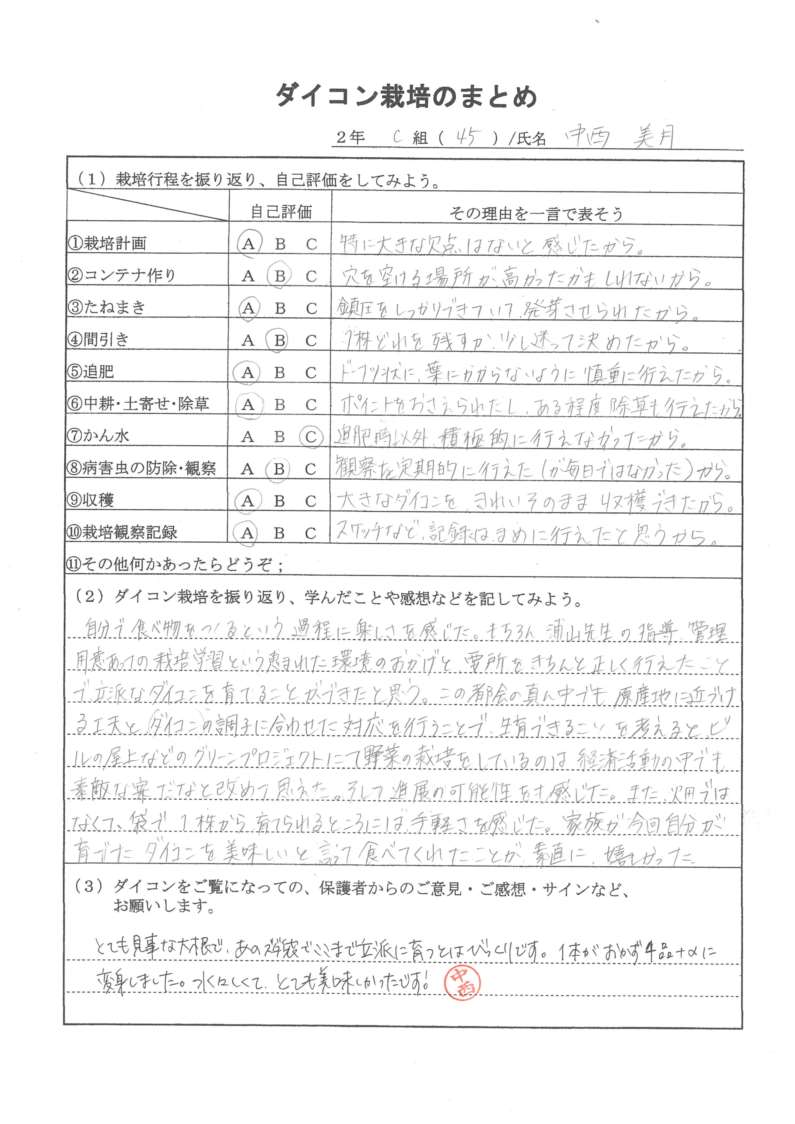 ダイコン栽培のまとめ
2年 C 組(45)/氏名 中西 美月
(1)栽培行程を振り返り、自己評価をしてみよう。
自己評価 その理由を一言で表そう
①栽培計画 A B C 特に大きな欠点はないと感じたから。
②コンテナ作り A B C 穴を空ける場所が、高かったかもしれないから。
③たねまき A B C 鎮圧をしっかりできていて、発芽させられたから。
④間引き A B C 7株どれを残すか、少し迷って決めたから。
⑤追肥 A B C ドーナツ状に、葉にかからないように慎重に行えたから。
⑥中耕・土寄せ・除草 A B C ポイントをおさえられたし、ある程度除草も行えたから。
⑦かん水 A B C 追肥時以外、積極的に行えなかったから。
⑧病害虫の防除・観察 A B C 観察を定期的に行えた(が毎日ではなかった)から。
⑨収穫 A B C 大きなダイコンを、きれいそのまま収穫できたから。
⑩栽培観察記録 A B C スケッチなど、記録はまめに行えたと思うから。
⑪その他何かあったらどうぞ;
(2)ダイコン栽培を振り返り、学んだことや感想などを記してみよう。
自分で食べ物をつくるという過程に楽しさを感じた。もちろん、浦山先生の指導、管理、
用意あっての栽培学習という恵まれた環境のおかげと、要所をきちんと正しく行えたこと
で立派なダイコンを育てることができたと思う。この都会の真ん中でも、原産地に近づけ
る工夫と、ダイコンの調子に合わせた対応を行うことで、生育できることを考えると、ビ
ルの屋上などのグリーンプロジェクトにて野菜の栽培をしているのは、経済活動の中でも
素敵な案だなと改めて思えた。そして進展の可能性をも感じた。また、畑では
なくて、袋で1株から育てられるところには手軽さを感じた。家族が今回自分が
育てたダイコンを美味しいと言って食べてくれたことが、素直に、嬉しかった。
(3)ダイコンをご覧になっての、保護者からのご意見・ご感想・サインなど、
お願いします。
とても見事な大根で、あの麻袋でここまで立派に育つとはびっくりです。1本がおかず4品+αに
変身しました。みずみずしくて、とても美味しかったです!
中西